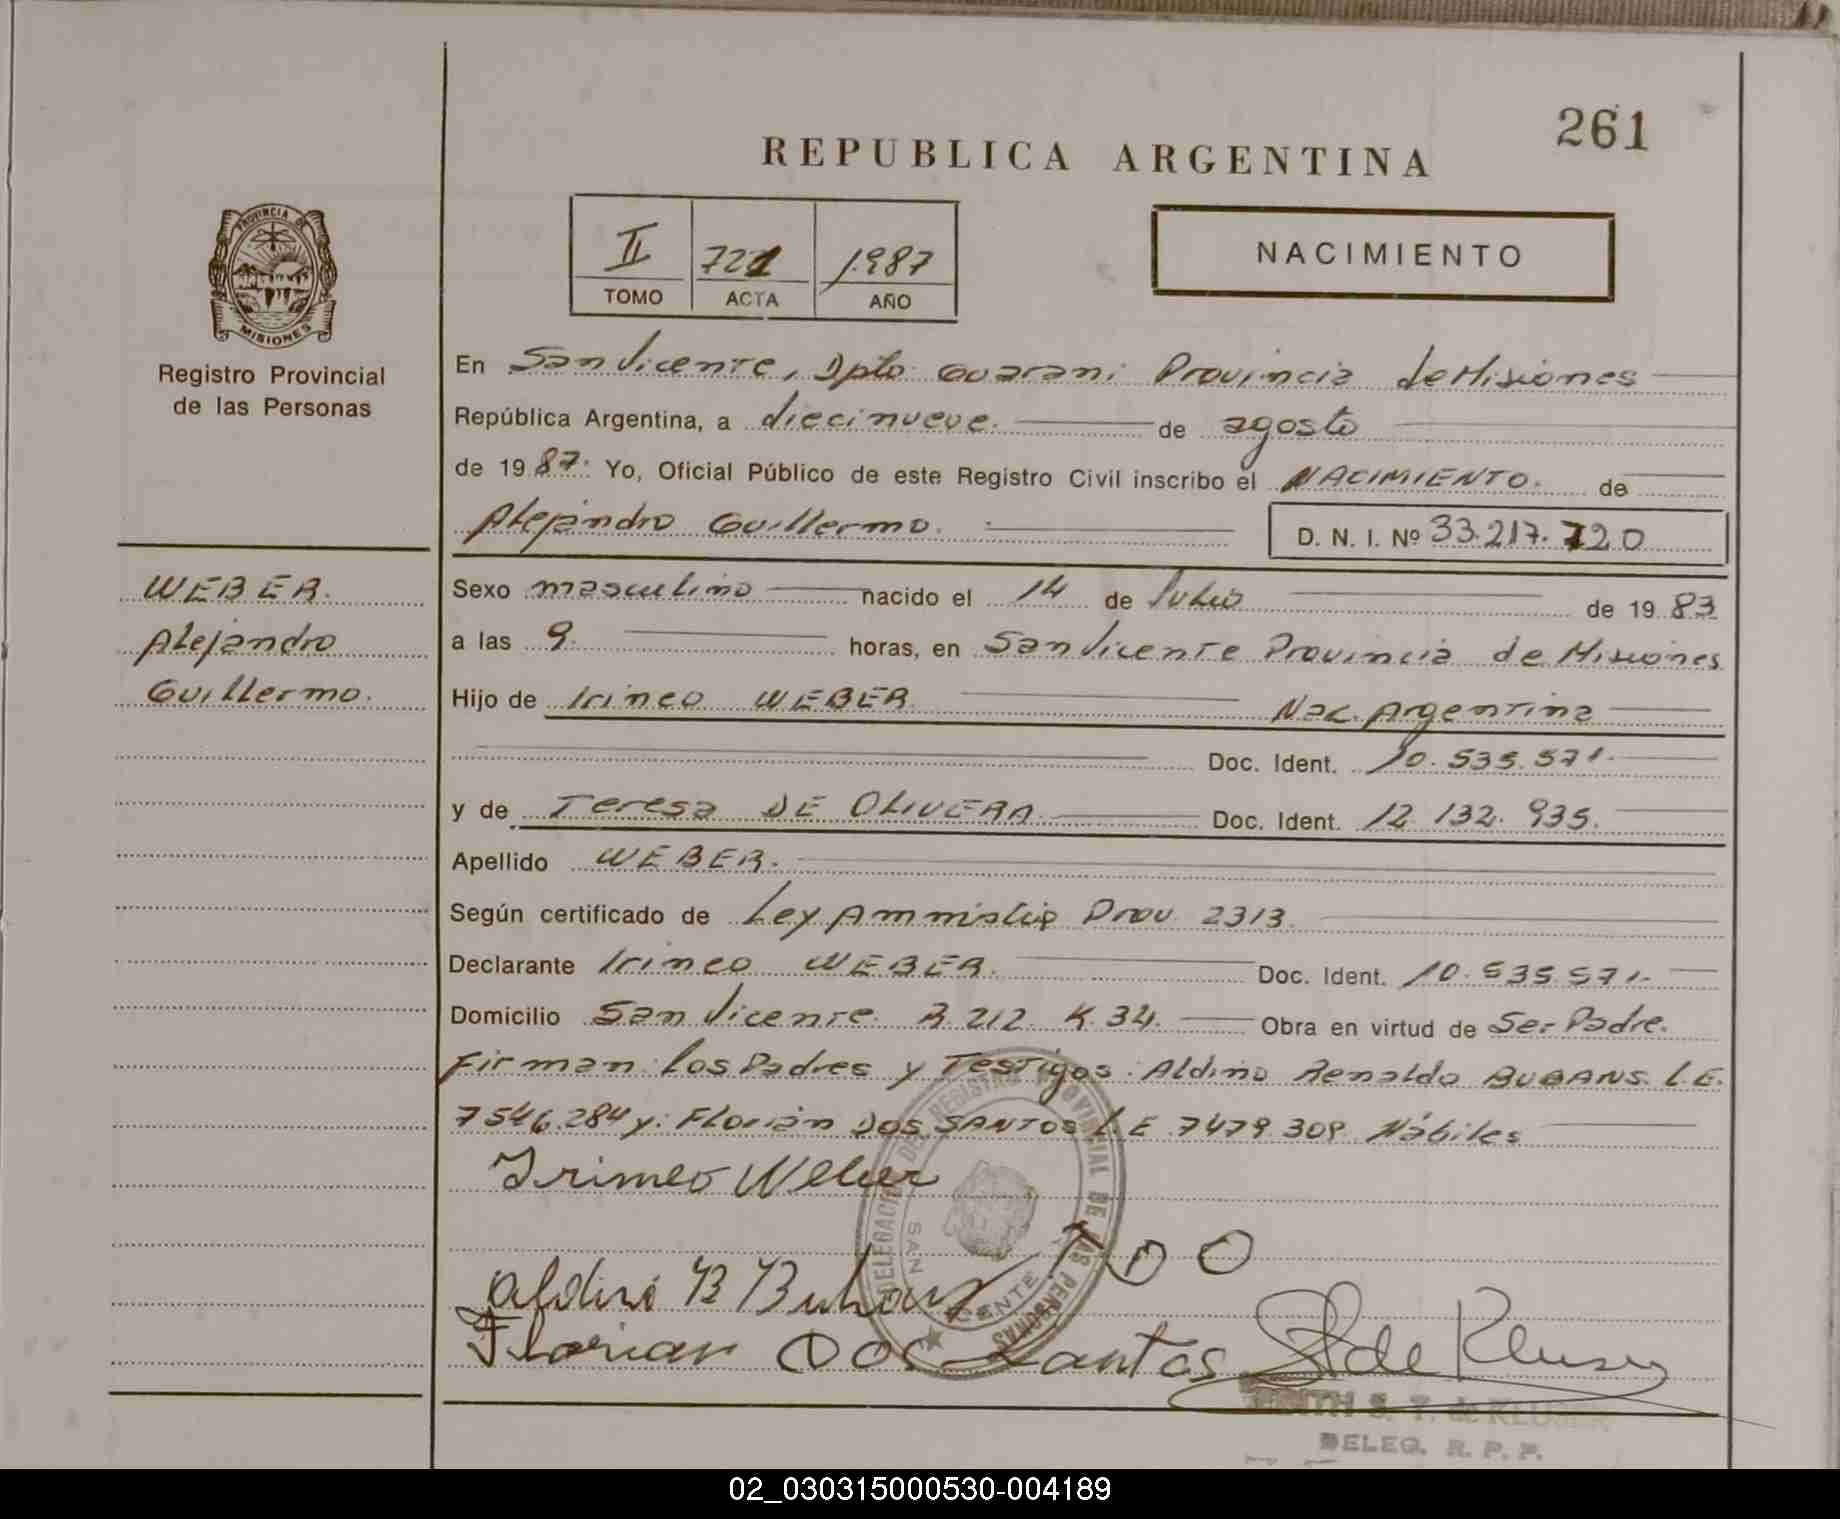 261
REPUBLICA ARGENTINA
PROVINCIA DE
MISIONES
Registro Provincial
de las Personas
II 721 1987
TOMO ACTA AÑO
NACIMIENTO
En San Vicente, Dpto Guarani Provincia de Misiones
República Argentina, a diecinueve. de agosto
de 1987. Yo, Oficial Público de este Registro Civil inscribo el NACIMIENTO. de
Alejandro Guillermo. D. N. I. Nº 33.217.720
WEBER.
Alejandro
Guillermo.
Sexo masculino nacido el 14 de Julio de 1983
a las 9. horas, en San Vicente Provincia de Misiones
Hijo de Irineo WEBER Nac. Argentina
Doc. Ident. 10.535.571.
y de Teresa DE OLIVERA Doc. Ident. 12.132.935.
Apellido WEBER.
Según certificado de Ley Ammistia Prov. 2313.
Declarante Irineo WEBER. Doc. Ident. 10.535.571.
Domicilio San Vicente. R. 212. K. 34. Obra en virtud de Ser Padre.
Firman: los Padres y Testigos: Aldino Renaldo BUBANS. L.E.
7546.284 y: Florián DOS SANTOS L.E 7479.309. Hábiles
Irineo Weber
DELEGACION DEL REGISTRO PROVINCIAL DE LAS PERSONAS
SAN VICENTE
T D O
Florian Dos Santos
S T de Kluser
EDITH S. T. de KLUSER
DELEG. R. P. P.
02_030315000530-004189